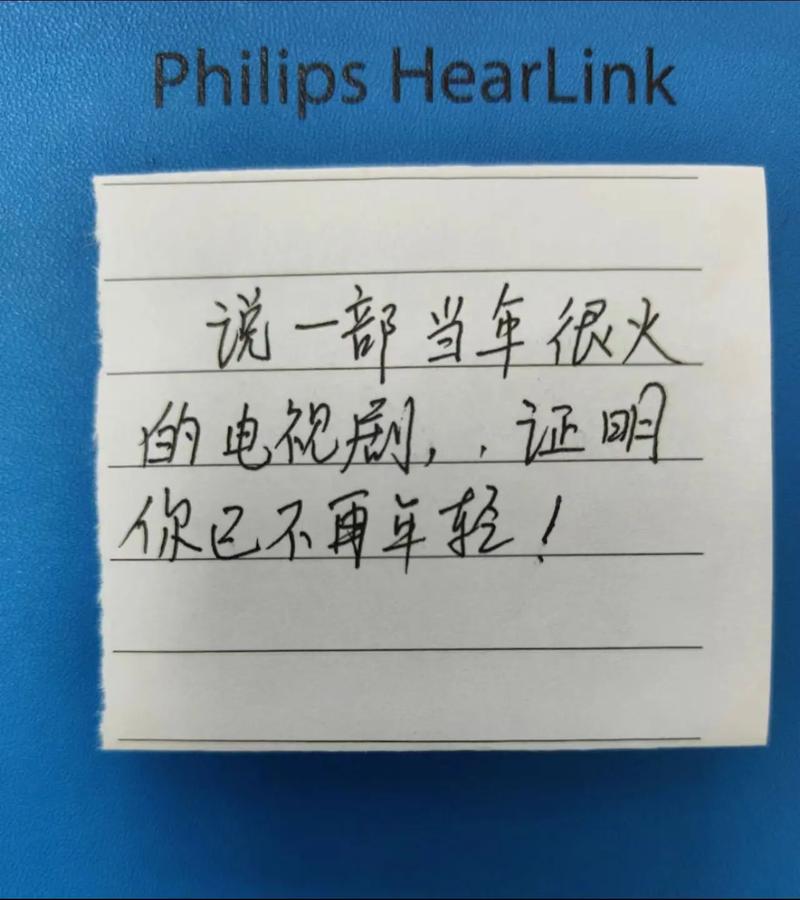 Philips HearLink
说一部当年很火
的电视剧，.证明
你已不再年轻！